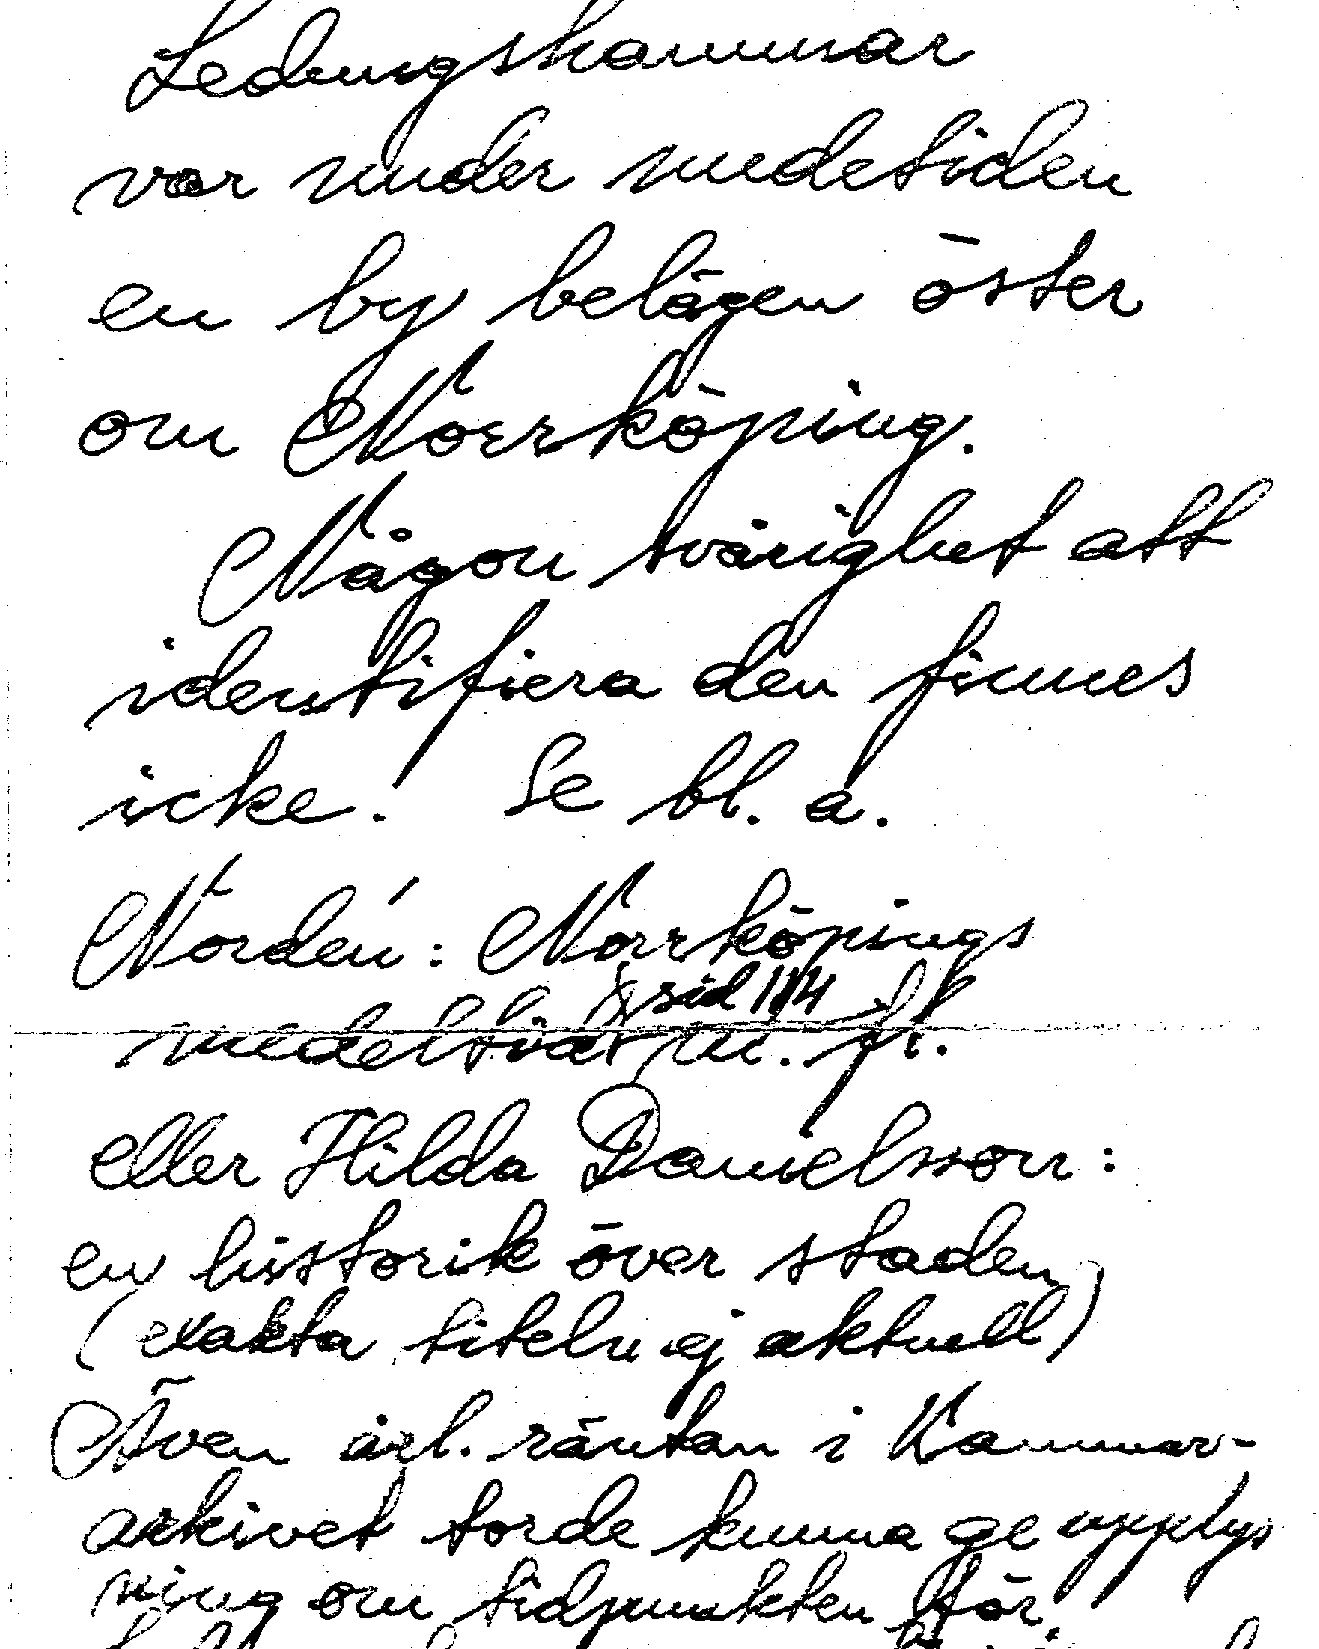 Ledungshammar
var under medetiden
en by belägen öster
om Norrköping.
Någon svårighet att
identifiera den finnes
icke! Se bl. a.
Nordén: Norrköpings
sid 114
medeltid m. fl.
eller Hilda Danielsson:
en historik över staden
(exakta titeln ej aktuell)
Även årl. räntan i Kammar-
arkivet torde kunna ge upplys
ning om tidpunkten för